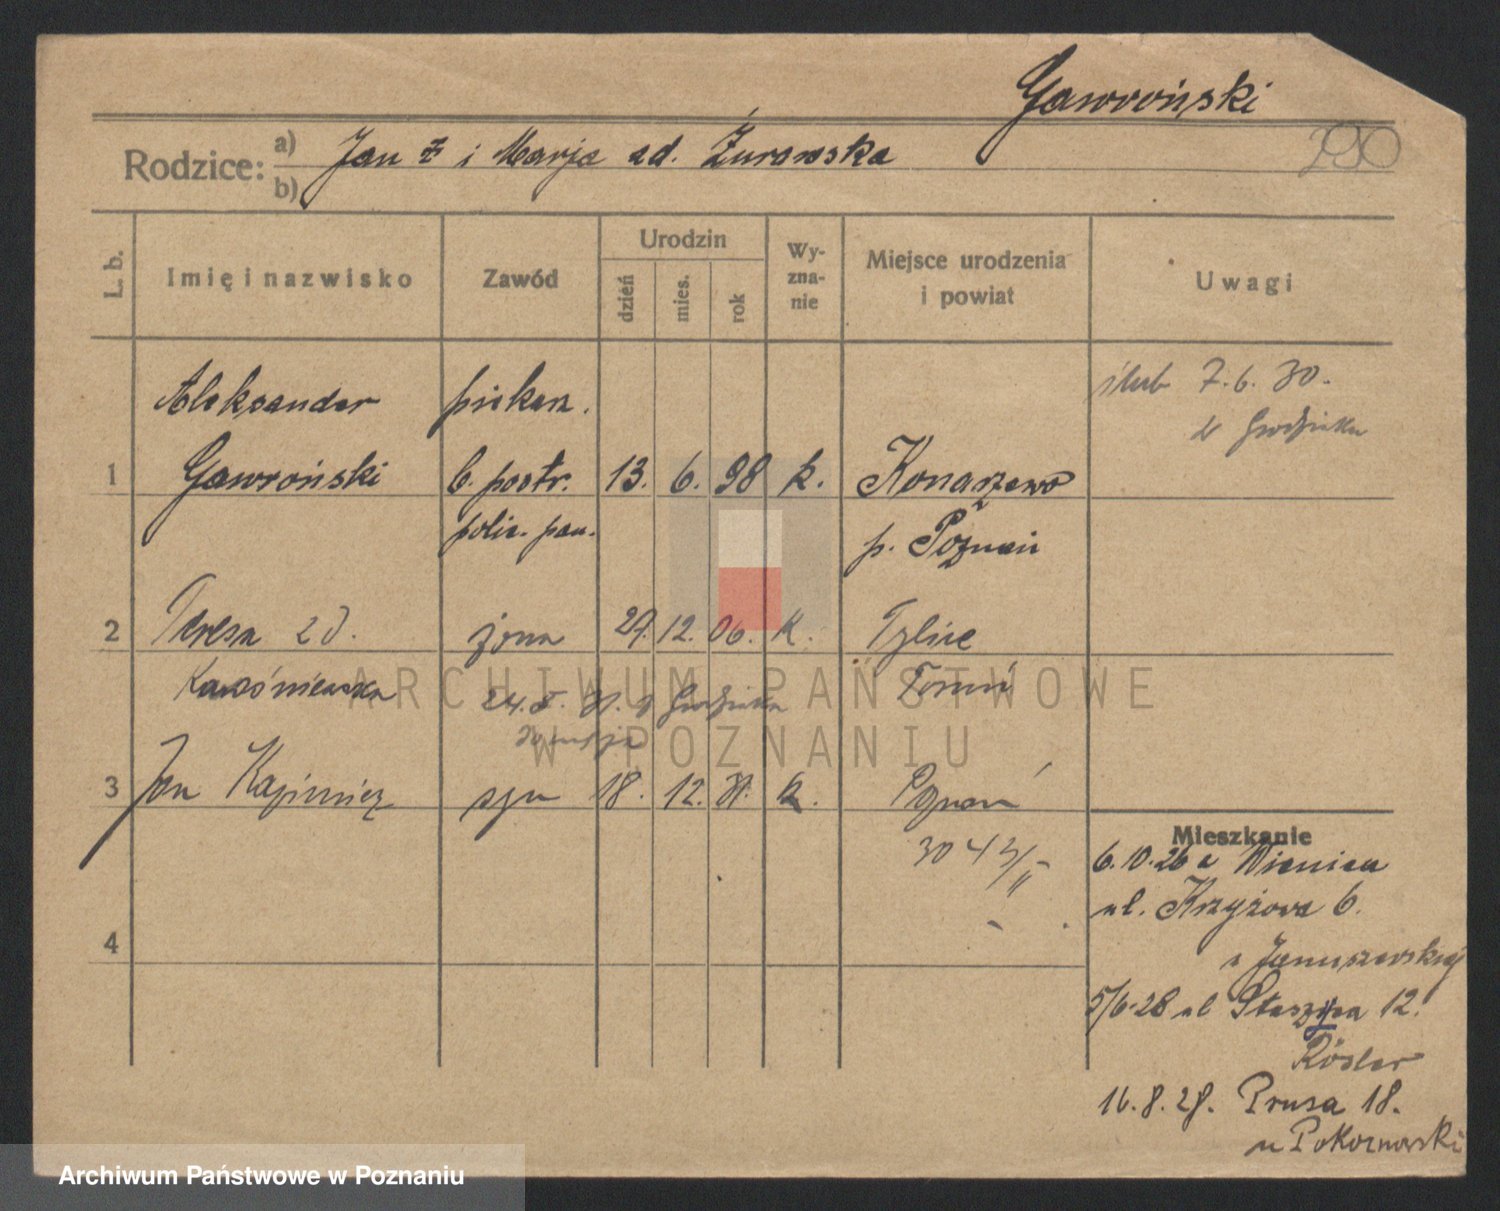 Gawroński
290
Rodzice: a) b) Jan i Marja zd. Żurawska
L. b.
Imię i nazwisko
Zawód
Urodzin
dzień
mies.
rok
Wy-
zna-
nie
Miejsce urodzenia
i powiat
Uwagi
Aleksander piekarz. ślub 7.6.30.
w Grodzisku
1 Gawroński b. postr. 13. 6. 98 k. Konarzewo
polic. pań. p. Poznań
2 Teresa zd. żona 29. 12. 06. k. Tylice
Kawśniewska 24.8. 31. z Grodziska Toruń
3 Jan Kazimierz syn 18. 12. 31. k. Poznań
Mieszkanie
6.10.26 z Winiar
ul. Krzyżowa 6.
u Januszewskiej
4
5/6-28 ul Staszica 12.
Rösler
16.8.28. Prusa 18.
u Pokornowski
ARCHIWUM PAŃSTWOWE
W POZNANIU
Archiwum Państwowe w Poznaniu